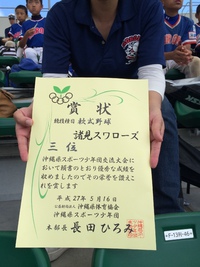 賞状
競技種目 軟式野球
諸見スワローズ
三位
沖縄県スポーツ少年団交流大会
において頭書のとおり優秀な成績を
収めましたのでその栄誉を讃えこ
れを賞します
平成27年5月16日
公益財団法人 沖縄県体育協会
沖縄県スポーツ少年団
本部長 長田ひろみ